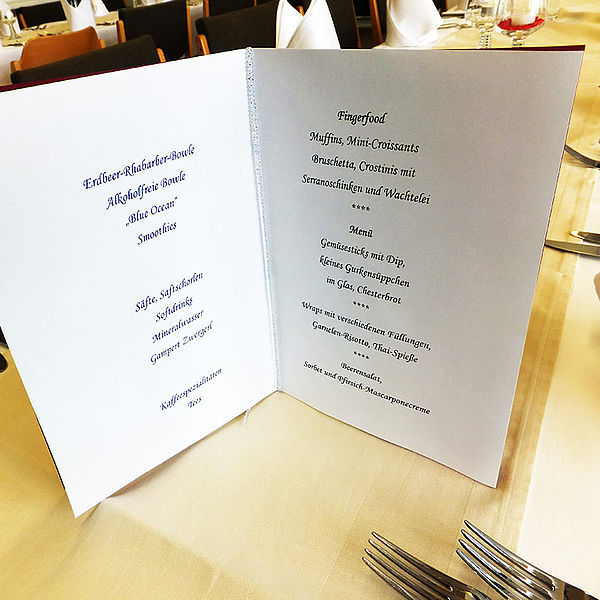 Erdbeer-Rhabarber-Bowle
Alkoholfreie Bowle
„Blue Ocean“
Smoothies
Säfte, Saftschorlen
Softdrinks
Mineralwasser
Gampert Zwergerl
Kaffeespezialitäten
Tees
Fingerfood
Muffins, Mini-Croissants
Bruschetta, Crostinis mit
Serranoschinken und Wachtelei
****
Menü
Gemüsesticks mit Dip,
kleines Gurkensüppchen
im Glas, Chesterbrot
****
Wraps mit verschiedenen Füllungen,
Garnelen-Risotto, Thai-Spieße
****
Beerensalat,
Sorbet und Pfirsich-Mascarponecreme